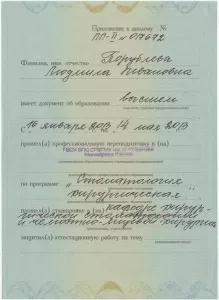 Приложение к диплому №
ПП-II № 017672
Фамилия, имя, отчество
Людмила Ивановна
имеет документ об образовании высшем
с 10 января 2013 14 мая 2013
прошел(а) профессиональную переподготовку в (на)
по программе „Стоматология
хирургическая"
прошел(а) стажировку в (на) кафедре хирур-
гической стоматологии
и челюстно-лицевой хирургии
защитил(а) аттестационную работу на тему